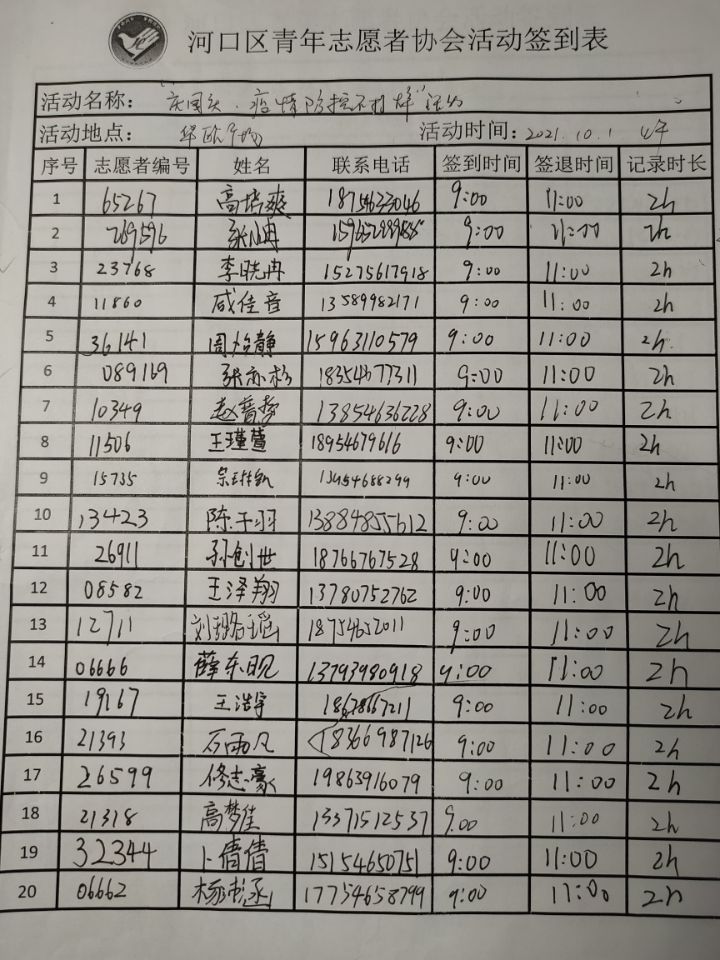 河口区青年志愿者协会活动签到表
活动名称： "庆国庆·疫情防控不打烊"活动
活动地点： 华联广场 活动时间：2021.10.1 上午
序号 志愿者编号 姓名 联系电话 签到时间 签退时间 记录时长
1 65267 高培爽 18754633046 9:00 11:00 2h
2 269596 9:00 11:00 2h
3 23768 李晓冉 15275617918 9:00 11:00 2h
4 11860 咸佳音 13589982171 9:00 11:00 2h
5 36141 周怡静 15963110579 9:00 11:00 2h
6 089169 张亦杉 18354677311 9:00 11:00 2h
7 10349 赵春梦 13854636228 9:00 11:00 2h
8 11506 王瑾萱 18954679616 9:00 11:00 2h
9 15735 9:00 11:00 2h
10 13423 陈子羽 13884855612 9:00 11:00 2h
11 26911 孙创世 18766767528 9:00 11:00 2h
12 08582 王泽翔 13780752762 9:00 11:00 2h
13 12711 刘璐瑶 18754652011 9:00 11:00 2h
14 06666 薛东昫 13793980918 9:00 11:00 2h
15 19167 王浩宇 18678667211 9:00 11:00 2h
16 21393 石雨凡 18366987126 9:00 11:00 2h
17 26599 修志豪 19863916079 9:00 11:00 2h
18 21318 高梦佳 13371512537 9:00 11:00 2h
19 32344 卜倩倩 15154650751 9:00 11:00 2h
20 06662 杨书涵 17754658799 9:00 11:00 2h